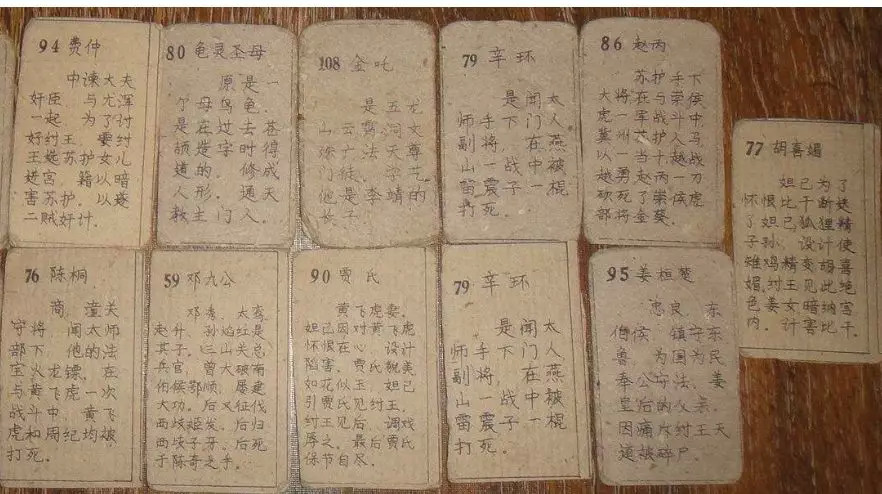 94 费仲
中谏大夫
奸臣，与尤浑
一起，为了讨
好纣王，要纣
王选苏护女儿
进宫，籍以暗
害苏护，以遂
二贼奸计。
80 龟灵圣母
原是一
个母乌龟，
是在过去苍
颉造字时得
道的，修成
人形。通天
教主门人。
108 金吒
是五龙
山云霄洞文
殊广法天尊
门徒，学艺
他是李靖的
长子
79 辛环
是闻太
师手下门人
副将，在燕
山一战中被
雷震子一棍
打死。
86 赵丙
苏护手下
大将，在与崇侯
虎的军战斗中
冀州苏护人马
以一当十越战
越勇赵丙一刀
砍死了崇侯虎
部将金葵。
77 胡喜媚
妲己为了
怀恨比干断送
了妲己狐狸精
子孙，设计使
雉鸡精变胡喜
媚，纣王见此绝
色美女暗纳宫
内。计害比干
76 陈桐
商，潼关
守将，闻太师
部下，他的法
宝火龙镖，在
与黄飞虎一次
战斗中，黄飞
虎和周纪均被
打死。
59 邓九公
邓秀，太鸾
赵升，孙焰红是
其子。（三山关总
兵官，曾大破南
伯侯鄂顺，屡建
大功。后又征伐
西岐姬发，后归
西岐子牙，后死
于陈奇之手。
90 贾氏
黄飞虎妻，
妲己因对黄飞虎
怀恨在心，设计
陷害。贾氏貌美
如花似玉，妲己
引贾氏见纣王，
纣王见后，调戏
辱之。最后贾氏
保节自尽。
79 辛环
是闻太
师手下门人
副将，在燕
山一战中被
雷震子一棍
打死。
95 姜桓楚
忠良，东
伯侯，镇守东
鲁，为国为民
奉公守法，姜
皇后的父亲，
因痛斥纣王无
道被碎尸。